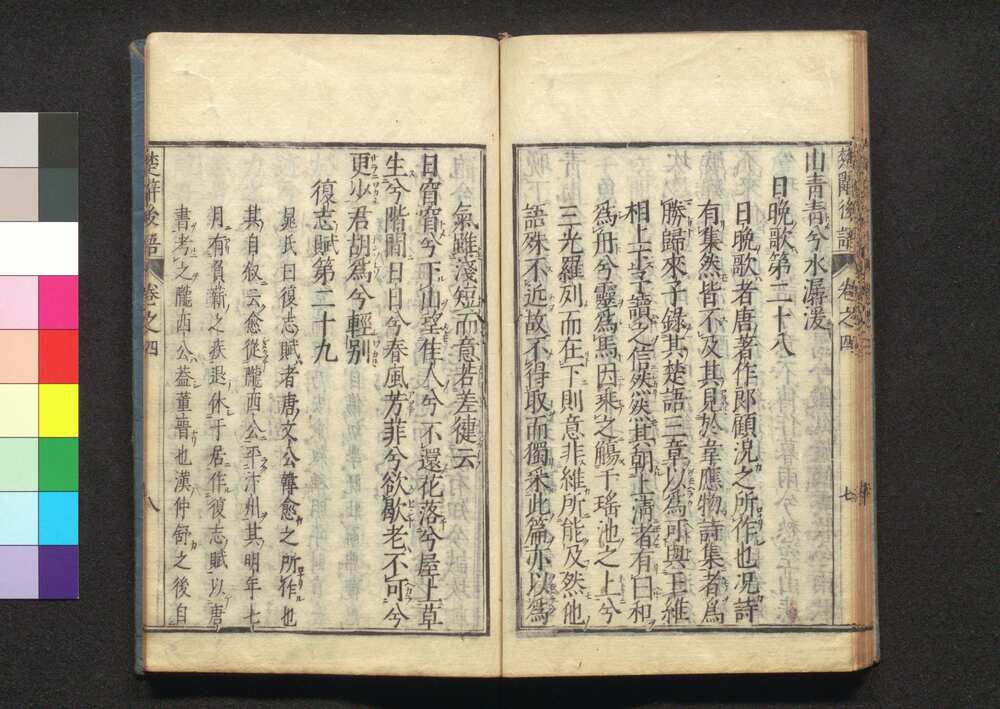 楚辭後語 卷之四 七
山青青兮水潺湲
日晩歌第二十八
日晩歌者唐著作郎顧况之所作也况詩
有集然皆不及其見於韋應物詩集者爲
勝歸來子錄其楚語三章以爲可與王維
相上下予讀之信然然其朝上清者有曰和
爲舟兮靈爲馬因乘之觴于瑤池之上兮
三光羅列而在下則意非維所能及然他
語殊不近故不得取而獨采此篇亦以爲
氣雖淺短而意若差健云
日窅窅兮下山望佳人兮不還花落兮屋上草
生兮階間日日兮春風芳菲兮欲歇老不可兮
更少君胡爲兮輕别
復志賦第二十九
晁氏曰復志賦者唐文公韓愈之所作也
其自叙云愈從隴西公平汴州其明年七
月有負薪之疾退休于居作復志賦以唐
書考之隴西公蓋董晋也漢仲舒之後自
楚辭後語 卷之四 八